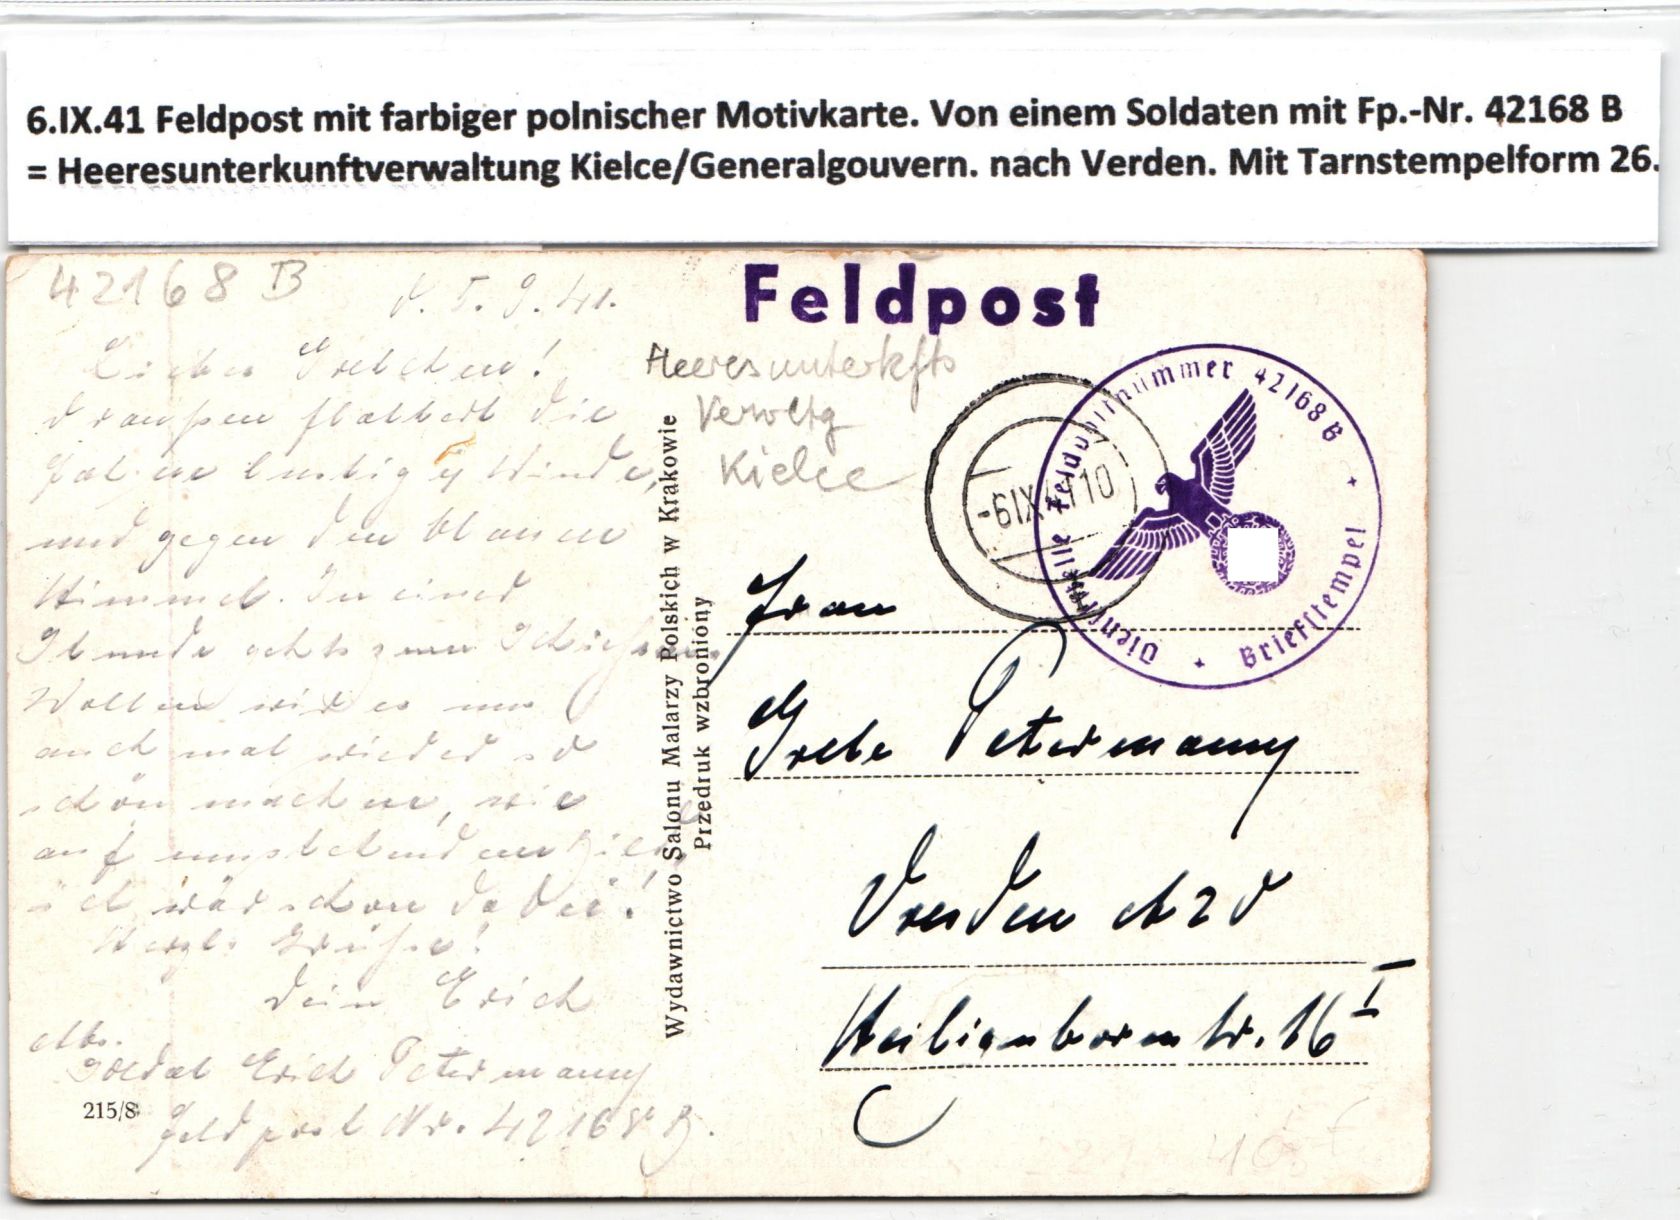 6.IX.41 Feldpost mit farbiger polnischer Motivkarte. Von einem Soldaten mit Fp.-Nr. 42168 B
= Heeresunterkunftverwaltung Kielce/Generalgouvern. nach Verden. Mit Tarnstempelform 26.
42168 B
d. 5.9.41.
Liebes Gretchen!
Draußen flattert die
lustig Winde,
und gegen den blauen
Himmel. In einer
Stunde gehts zum
Wollen wir es uns
auch mal wieder so
schön machen, wie
auf umstehendem Bild,
ich wär schon dabei!
Herzl. Grüße!
Dein Erich
Abs.
Soldat Erich Petermann
Feldpost Nr. 42168 B.
215/8
Wydawnictwo Salonu Malarzy Polskich w Krakowie
Przedruk wzbroniony
Feldpost
Heeresunterkfts
Verwltg
Kielce
-6IX 41 10
Dienststelle Feldpostnummer 42168 B
+ Briefstempel +
Frau
Grete Petermann
Dresden A20
Heiligenbornstr. 16 I